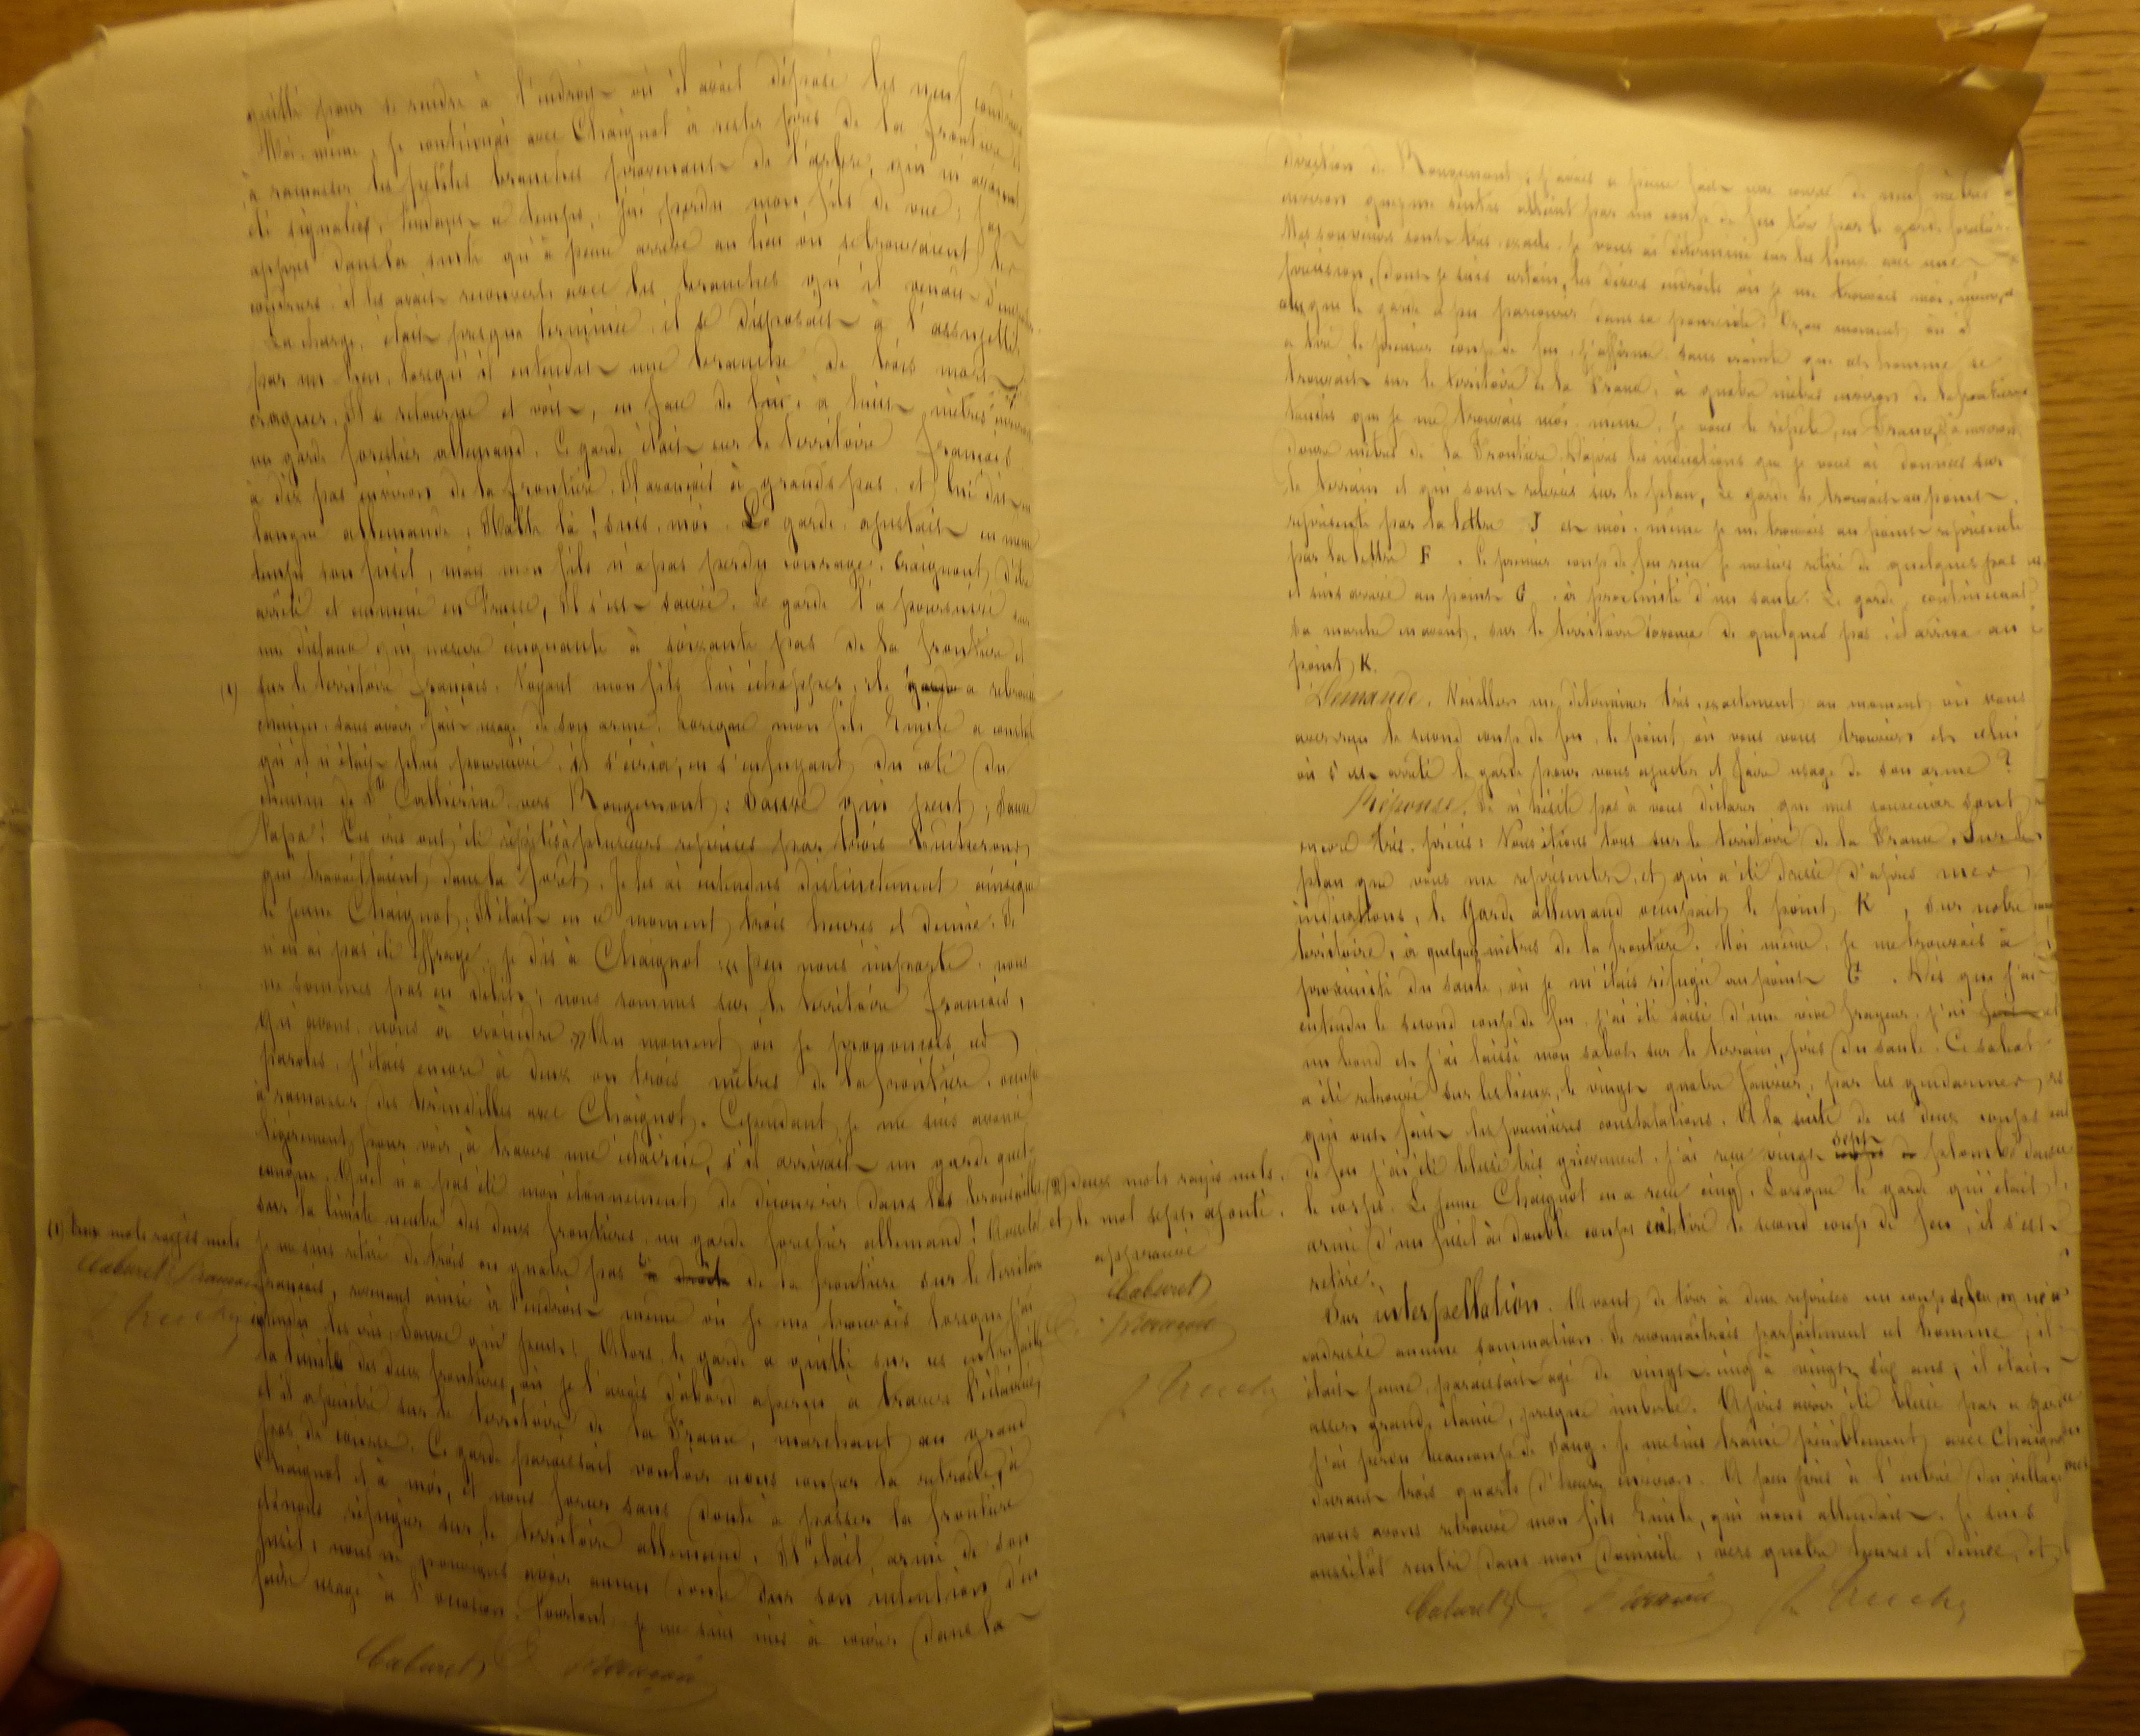 quitté pour se rendre à l'endroit où il avait déposé les neuf
Moi-même, je continuai avec Chaignot à rester près de la frontière et
à ramasser les petites branches provenant de l'arbre, qui m'avaient
été signalées. Pendant ce temps, j'ai perdu mon fils de vue; j'ai
appris dans la suite qu'à peine arrivé au lieu où se trouvaient les
il les avait recouverts avec les branches qu'il venait
La charge, était presque terminée, il se disposait à l'assujettir
par un lien, lorsqu'il entendit une branche de bois mort
craquer. Il se retourne et voit, en face de lui, à huit mètres environ
un garde forestier allemand. Ce garde était sur le territoire français
à dix pas environ de la frontière. Il avançait à grands pas, et lui dit en
langue allemande: Halte là! suis-moi. Le garde ajustait en même
temps son fusil, mais mon fils n'a pas perdu courage. Craignant d'être
arrêté et emmené en Prusse, il s'est sauvé. Le garde l'a poursuivi sur
une distance qui mesure cinquante à soixante pas de la frontière et
sur le territoire français. Voyant mon fils lui échapper, le garde a rebroussé
chemin, sans avoir fait usage de son arme. Lorsque mon fils Emile a constaté
qu'il n'était plus poursuivi, il s'écria, en s'enfuyant du côté du
chemin de Ste Catherine, vers Rougemont: Sauve qui peut; Sauve
Papa! Ces cris ont été répétés à plusieurs reprises par trois bucherons
qui travaillaient dans la forêt. Je les ai entendus distinctement ainsi que
le jeune Chaignot. Il était en ce moment trois heures et demie. Je
n'en ai pas été effrayé, je dis à Chaignot: « peu nous importe, nous
ne sommes pas en délit; nous sommes sur le territoire français,
qu'avons-nous à craindre » Au moment où je prononçais ces
paroles, j'étais encore à deux ou trois mètres de la frontière, occupé
à ramasser des brindilles avec Chaignot. Cependant je me suis avancé
légèrement pour voir, à travers une éclaircie, s'il arrivait un garde quel-
conque. Quel n'a pas été mon étonnement de découvrir dans les broussailles
sur la limite neutre des deux frontières, un garde forestier allemand! Aussitôt
je me suis retiré de trois ou quatre pas de la frontière sur le territoire
français, revenant ainsi à l'endroit même où je me trouvais lorsque j'ai
entendu les cris, sauve qui peut! Alors, le garde a quitté sur ces entrefaites
la limite des deux frontières, où je l'avais d'abord aperçu à travers l'éclaircie,
et il a pénétré sur le territoire de la France, marchant au grand
pas de course. Ce garde paraissait vouloir nous couper la retraite, à
Chaignot et à moi, et nous forcer sans doute à passer la frontière
et à nous réfugier sur le territoire allemand. Il était armé de son
fusil; nous ne pouvions avoir aucun doute sur son intention d'en
faire usage à l'occasion. Pourtant je me suis mis à courir dans la
Cabaret
(1)
(1) Deux mots rayés nuls
Cabaret
direction de Rougemont; j'avais à peine fait une course de neuf mètres
environ que je me sentis atteint par un coup de feu tiré par le garde forestier.
Mes souvenirs sont très exacts. Je vous ai déterminé sur les lieux avec une
précision, dont je suis certain, les divers endroits où je me trouvais moi-même,
que le garde a pu parcourir dans sa poursuite. Or, au moment où il
a tiré le premier coup de feu, j'affirme sans crainte que cet homme se
trouvait sur le territoire de la France, à quatre mètres environ de la frontière
tandis que je me trouvais moi-même, je vous le répète, en France, à environ
douze mètres de la Frontière. D'après les indications que je vous ai données sur
le terrain et qui sont relevées sur le plan, le garde se trouvait au point
représenté par la lettre J et moi-même je me trouvais au point représenté
par la lettre F. Le premier coup de feu reçu je me suis retiré de quelques pas
et suis arrivé au point G, à proximité d'un saule. Le garde, continuant
sa marche en avant, sur le territoire de quelques pas, il arriva au
point K.
Demande. Veuillez me déterminer très exactement au moment où vous
avez reçu le second coup de feu, le point où vous vous trouviez et celui
où s'est arrêté le garde pour vous ajuster et faire usage de son arme?
Réponse. Je n'hésite pas à vous déclarer que mes souvenirs sont
encore très précis: Nous étions tous sur le territoire de la France. Sur le
plan que vous me représentez, et qui a été dressé d'après mes
indications, le Garde allemand occupait le point K, sur notre
territoire, à quelques mètres de la frontière. Moi même, je me trouvais à
proximité du saule, où je m'étais réfugié au point G. Dès que j'ai
entendu le second coup de feu, j'ai été saisi d'une vive frayeur, j'ai
un bond et j'ai laissé mon sabot sur le terrain, près du saule. Ce sabot
a été retrouvé sur les lieux, le vingt quatre Janvier, par les gendarmes,
qui ont fait les premières constatations. A la suite de ces deux coups
de feu j'ai été blessé très grièvement. J'ai reçu vingt sept plombs dans
le corps. Le jeune Chaignot en a reçu cinq. Lorsque le garde qui était
armé d'un fusil à double coups eût tiré le second coup de feu, il s'est
retiré.
Sur interpellation. Avant de tirer à deux reprises un coup de feu, on ne m'a
adressé aucune sommation. Je reconnaîtrais parfaitement cet homme, il
était jeune, paraissait âgé de vingt-cinq à vingt six ans, il était
assez grand, élancé, presque imberbe. Après avoir été blessé par ce garde
j'ai perdu beaucoup de sang. Je me suis traîné péniblement avec Chaignot
durant trois quarts d'heure environ. A peu près à l'entrée du village
nous avons retrouvé mon fils Emile, qui nous attendait. Je suis
aussitôt rentré dans mon domicile, vers quatre heures et demie, et
Cabaret
(2) deux mots rayés nuls.
et le mot sept ajouté.
approuvé
Cabaret